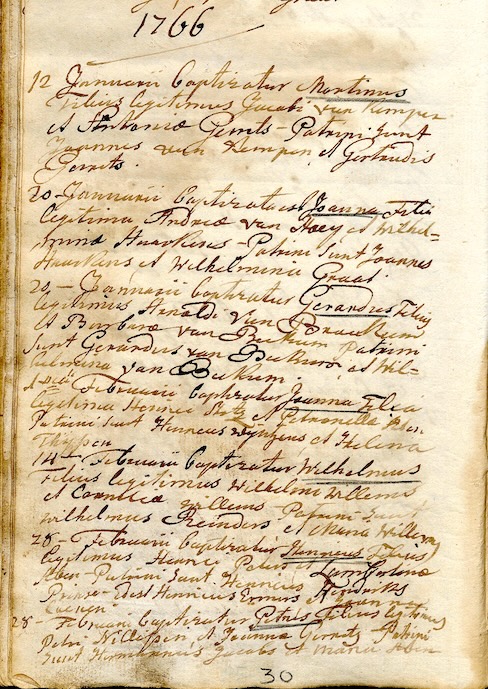 1766
12 Januarii baptizatur Martinus
Filius legitimus Jacobi van Kempen
et Antoniæ Peints - Patrini sunt
Joannes van Kempen et Gertrudis
Gerrits.
20 - Januarii baptizata est Joanna Filia
legitima Andreæ van Haey et Wilhel-
minæ Haerkens - Patrini sunt Joannes
Haerkens et Wilhelmina Graat
20, - Januarii baptizatur Gerardus Filius
legitimus Arnoldi van
et Barbaræ van Beekum Patrini
sunt Gerardus van Beekum et Wil-
helmina van Beekum.
Februarii baptizatur Joanna Filia
legitima Henrici et Petronella
Patrini sunt Henricus et Helena
Thyssen
14 - Februarii baptizatur Wilhelmus
Filius legitimus Wilhelmi Willems
et Corneliæ Willems - Patrini sunt
Wilhelmus Reinders et Maria Willems
28 - Februarii baptizatur Henricus Filius
legitimus Henrici et Lambertinæ
- Patrini sunt Henricus Hendriks
est Henricus Joanna
28 - Februarii baptizatur Petrus Filius legitimus
Petri et Joannæ Gerrits Patrini
sunt Hermannus Jacobs et Maria
30